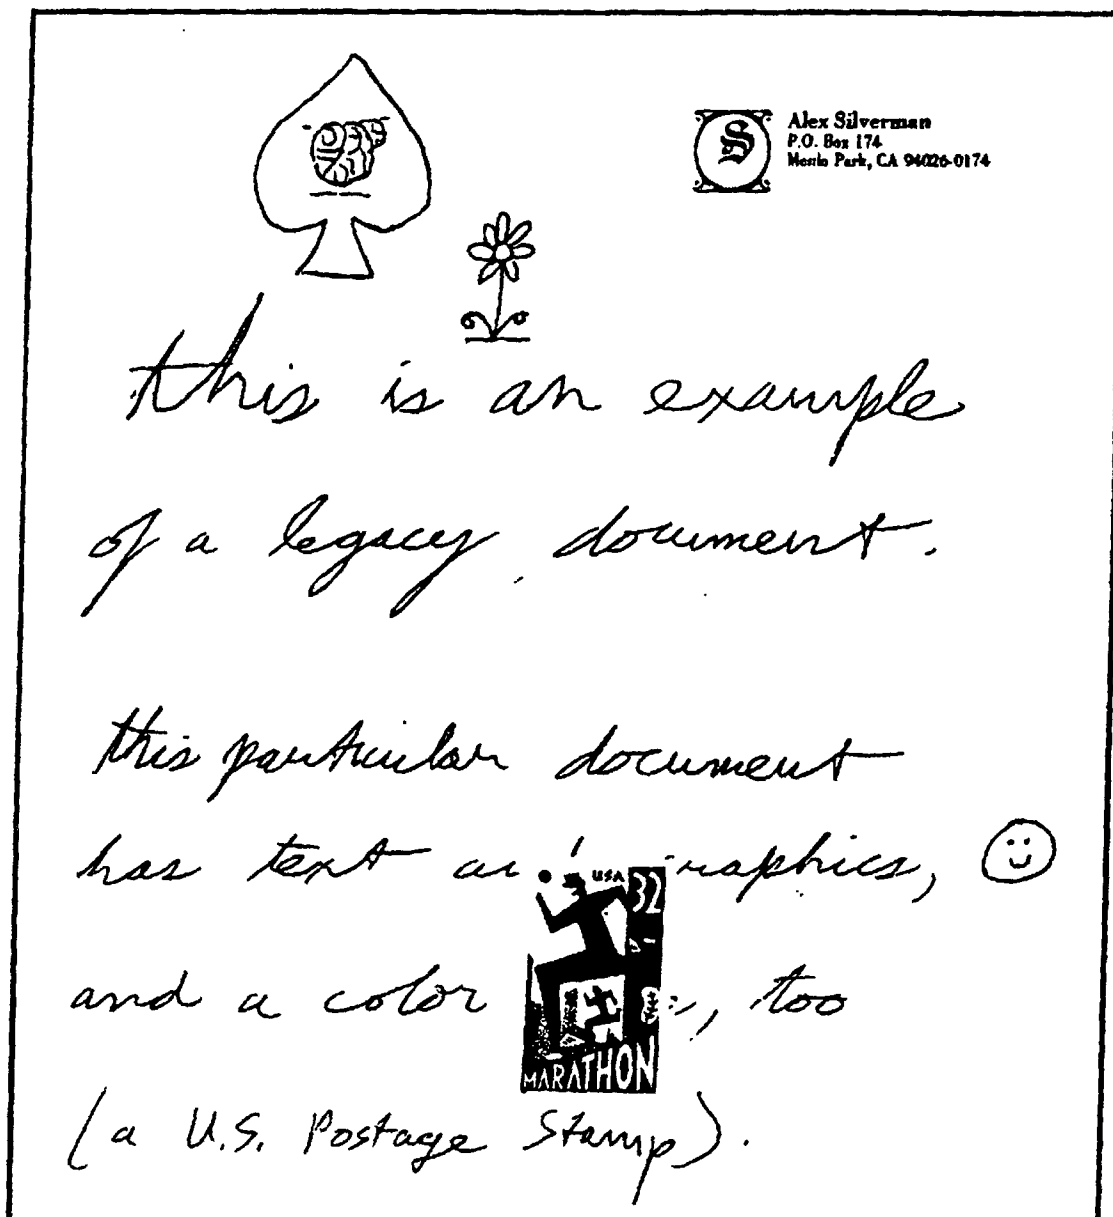 S
Alex Silverman
P.O. Box 174
Menlo Park, CA 94026-0174
this is an example
of a legacy document.
this particular document
has text graphics,
USA 32
and a color , too
MARATHON
(a U.S. Postage Stamp).